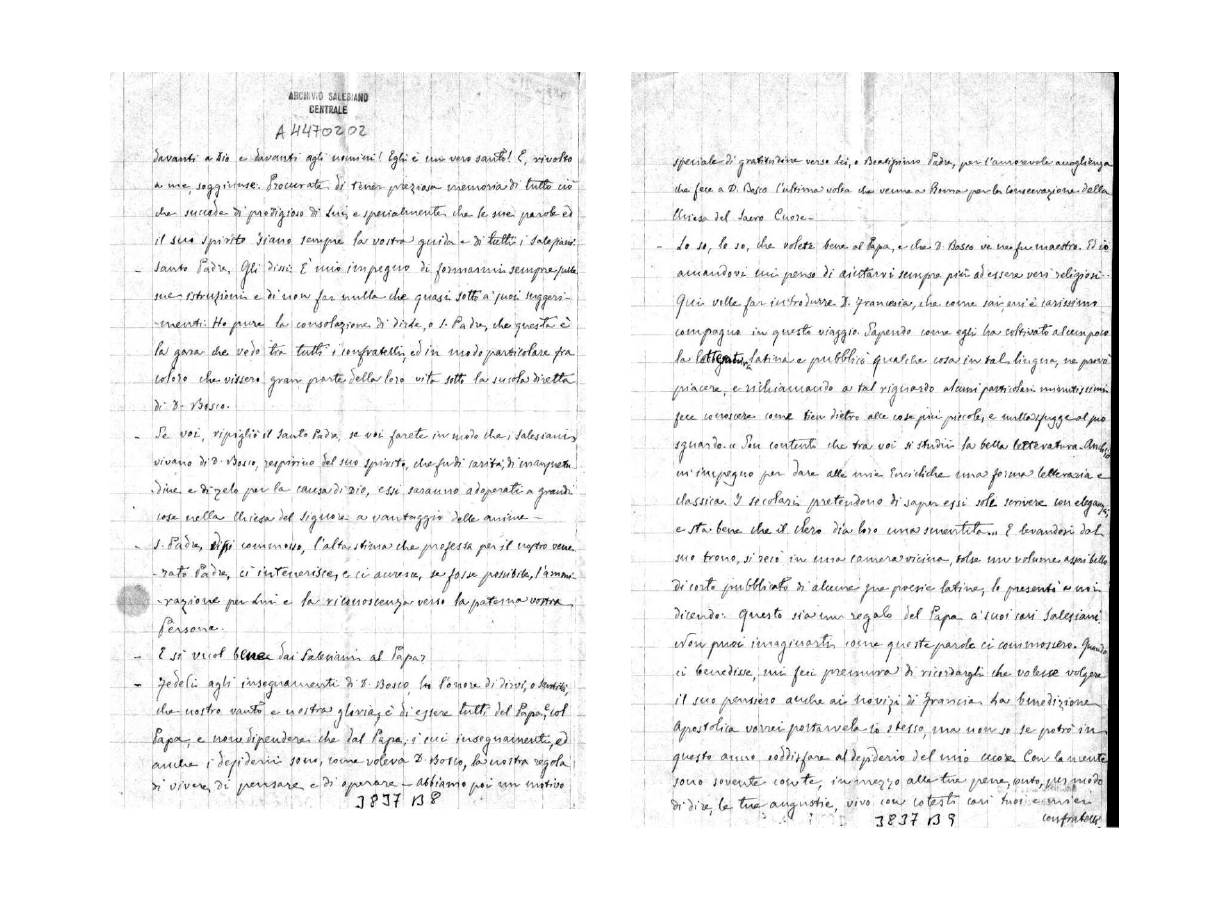 ARCHIVIO SALESIANO
CENTRALE
A4470202
davanti a Dio e davanti agli uomini! Egli è un vero santo! E, rivolto
a me, soggiunse. Procurate di tener preziosa memoria di tutto ciò
che succede di prodigioso di Lui, e specialmente che le sue parole ed
il suo spirito siano sempre la vostra guida e di tutti i Salesiani.
- Santo Padre, Gli dissi: È mio impegno di formarmi sempre sulle
sue istruzioni e di non far nulla che quasi sotto a' suoi suggeri-
-menti. Ho pure la consolazione di dirle, o S. Padre, che questa è
la gara che vedo tra tutti i confratelli, ed in modo particolare fra
coloro che vissero gran parte della loro vita sotto la scuola diretta
di D. Bosco.
- Se voi, ripigliò il Santo Padre, se voi farete in modo che i Salesiani
vivano di D. Bosco, respirino del suo spirito, che fu di carità, di mansuetu
dine e di zelo per la causa di Dio, essi saranno adoperati a grandi
cose nella Chiesa del Signore a vantaggio delle anime -
- S. Padre, dissi commosso, l'alta stima che professa per il nostro vene
-rato Padre, ci intenerisce, e ci accresce, se fosse possibile, l'ammi
-razione per Lui e la riconoscenza verso la paterna vostra
Persona.
- E si vuol bene dai Salesiani al Papa?
- Fedeli agli insegnamenti di D. Bosco, ho l'onore di dirvi, o
che nostro vanto e nostra gloria, è di essere tutti del Papa, col
Papa, e non dipendere che dal Papa; i cui insegnamenti, ed
anche i desideri sono, come voleva D. Bosco, la nostra regola
di vivere, di pensare e di operare - abbiamo poi un motivo
3837 B8
speciale di gratitudine verso Lei, o Beatissimo Padre, per l'amorevole accoglienza
che fece a D. Bosco l'ultima volta che venne a Roma per la Consecrazione della
Chiesa del Sacro Cuore -
- Lo so, lo so, che volete bene al Papa, e che D. Bosco ve ne fu maestro. Ed io
amandovi mi penso di aiutarvi sempre più ad essere veri religiosi -
Qui volle far introdurre D. Francesia, che come sai, mi è carissimo
compagno in questo viaggio. Sapendo come egli ha coltivato alcun poco
la letteratura latina e pubblicò qualche cosa in tal lingua, ne provò
piacere, e richiamando a tal riguardo alcuni particolari minutissimi
fece conoscere come tien dietro alle cose più piccole, e nulla sfugge al suo
sguardo. « Son contento che tra voi si studii la bella letteratura. Anch'io
m'impegno per dare alle mie Encicliche una forma letteraria e
classica. I secolari pretendono di saper essi soli scrivere con eleganza,
e sta bene che il Clero dia loro una smentita... E levandosi dal
suo trono, si recò in una camera vicina, tolse un volume assai bello
di certo pubblicato di alcune sue poesie latine, lo presentò a noi
dicendo: Questo sia un regalo del Papa a' suoi cari Salesiani.
Non puoi immaginarti come queste parole ci commossero. Quando
ci benedisse, mi feci premura di ricordargli che volesse volgere
il suo pensiero anche ai novizi di Francia. La benedizione
Apostolica vorrei portarvela io stesso, ma non so se potrò in
questo anno soddisfare al desiderio del mio cuore. Con la mente
sono sovente con te, in mezzo alle tue pene, sento, per modo
di dire, le tue angustie, vivo con cotesti cari tuoi e miei
confratelli
3837 B9